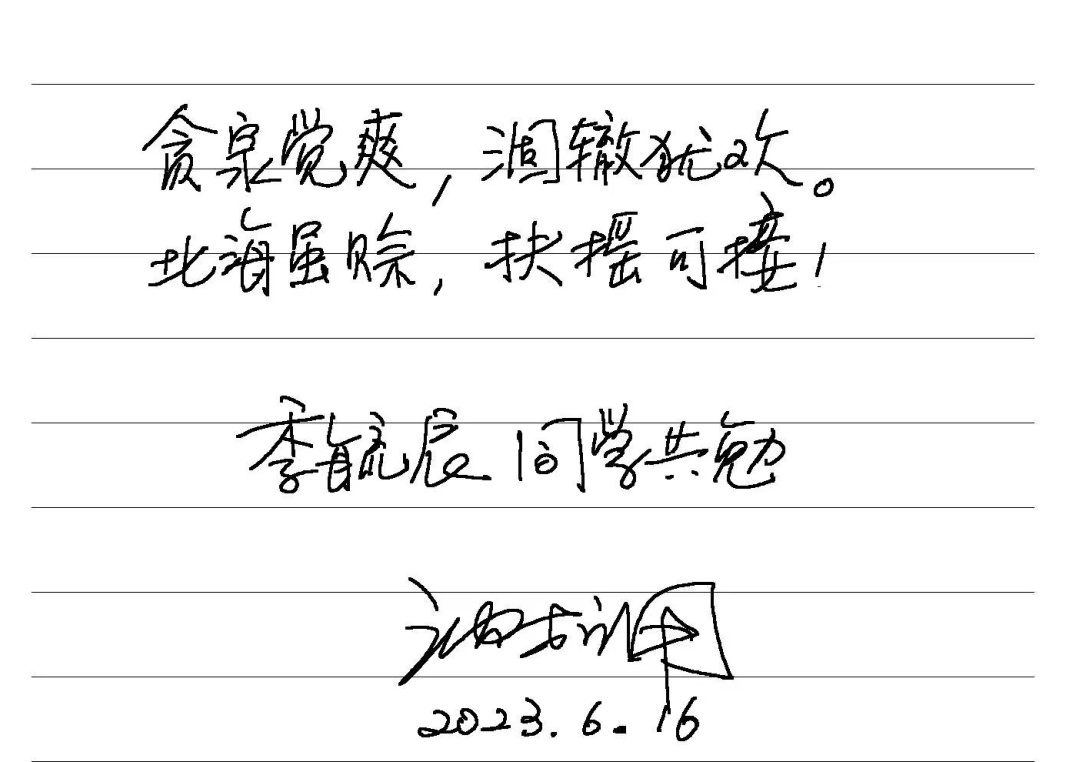 贪泉觉爽，涸辙犹欢。
北海虽赊，扶摇可接！
季毓辰 同学共勉
2023.6.16